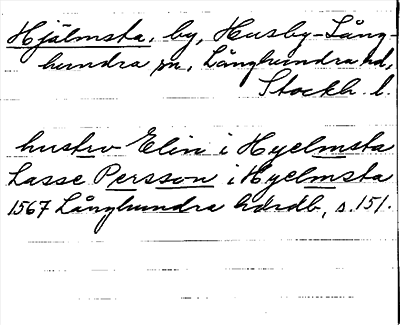 Hjälmsta, by, Husby-Lång-
hundra sn, Långhundra hd,
Stockh. l.
hustro Elin i Hyelmsta
Lasse Persson i Hyelmsta
1567 Långhundra hdrdb, s. 151.